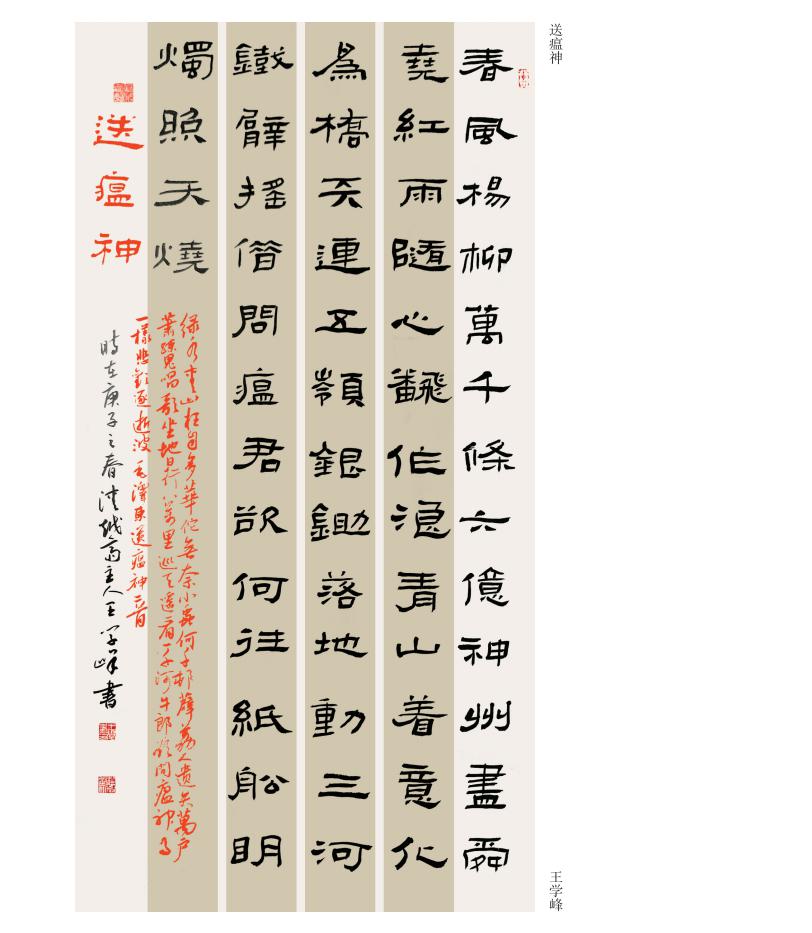 送瘟神
春風楊柳萬千條六億神州盡舜
堯紅雨隨心飜作浪青山着意化
為橋天連五嶺銀鋤落地動三河
鐵臂搖借問瘟君欲何往紙船明
燭照天燒
绿水青山枉自多華佗無奈小蟲何千邨薜荔人遺矢萬户
蕭疏鬼唱歌坐地日行八萬里巡天遥看一千河牛郎欲問瘟神事
一樣悲歡逐逝波毛澤東送瘟神二首
送瘟神
時在庚子之春津城斋主人王學峰書
王学峰